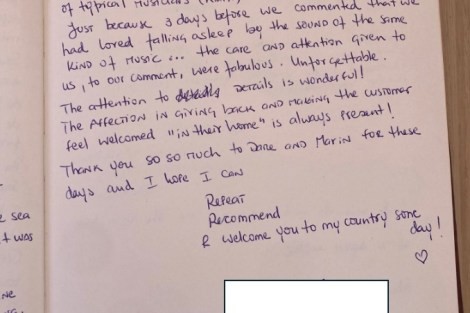 of typical musicians
Just because 3 days before we commented that we
had loved falling asleep by the sound of the same
kind of music ... the care and attention given to
us, to our comment, were fabulous. Unforgettable.
The attention to details is wonderful!
The Affection in giving back and making the customer
feel welcomed "in their home" is always present!
Thank you so so much to Dore and Marin for these
days and I hope I can
Repeat
Recommend
& welcome you to my country some
day!
♡
e sea
t was